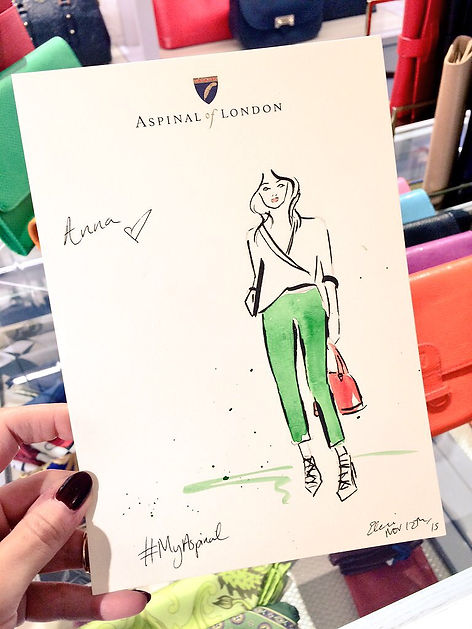 ASPINAL of LONDON
Anna
#MyAspinal
Nov 12th 15